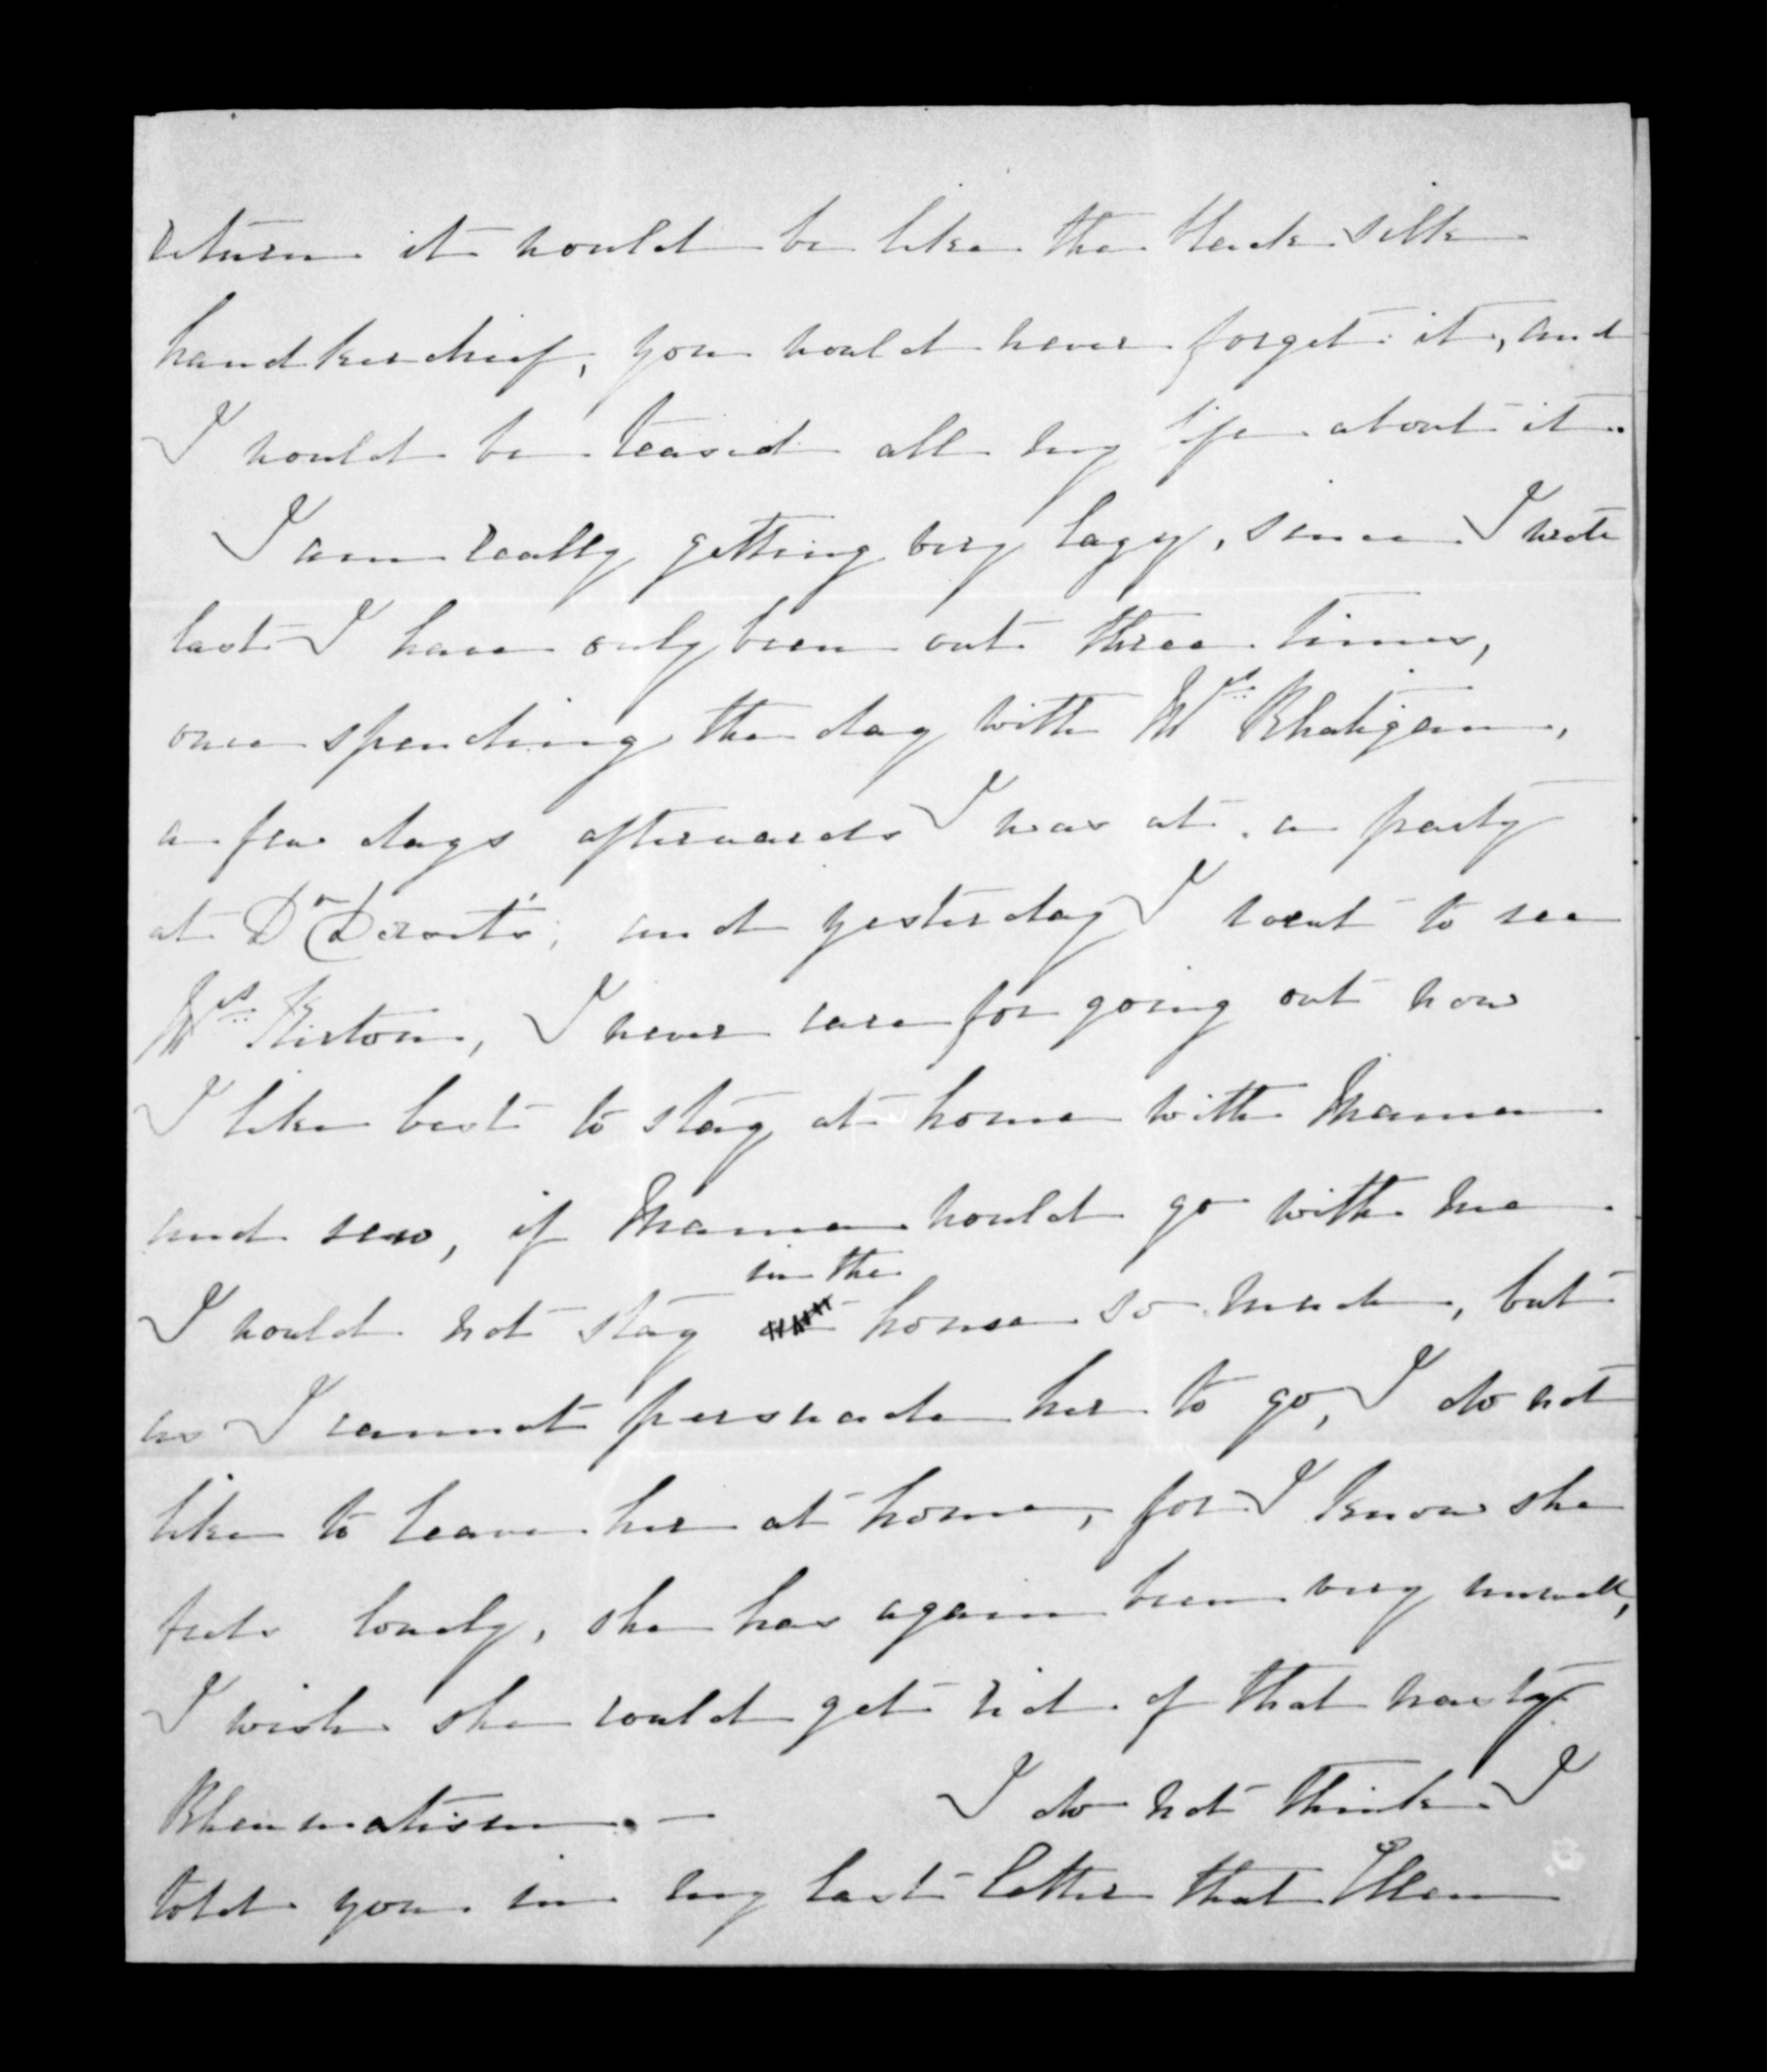 return it would be like the black silk
handkerchief, you would never forget it, and
I would be teased all my life about it.
I am really getting very lazy, since I wrote
last I have only been out three times,
once spending the day with Mrs Rhatigan,
a few days afterwards I was at a party
at Dr and yesterday I went to see
Mrs Kirton, I never care for going out now
I like best to stay at home with Mama
and sew, if Mama would go with me
I would not stay in the house so much, but
as I cannot persuade her to go, I do not
like to leave her at home, for I know she
feels lonely, she has again been very unwell,
I wish she could get rid of that nasty
Rheumatism. — I do not think I
told you in my last letter that Ellen